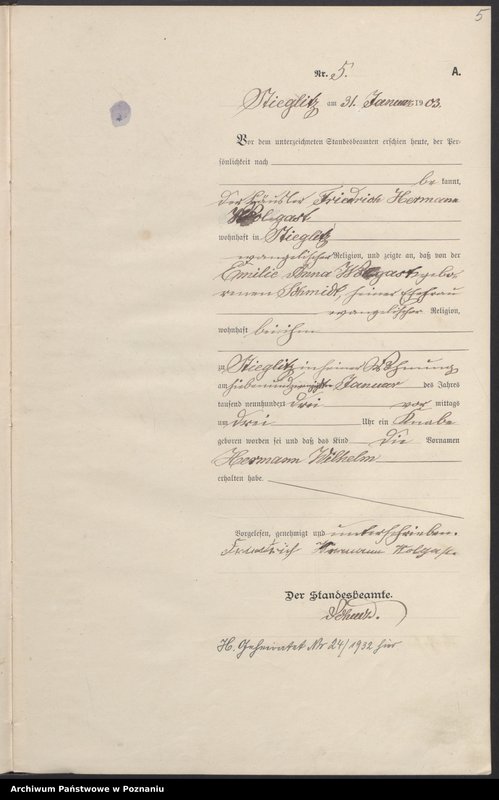 5
Nr. 5. A.
Stieglitz am 31. Januar 1903.
Vor dem unterzeichneten Standesbeamten erschien heute, der Per-
sönlichkeit nach
be kannt,
der Häusler Friedrich Hermann
Wolegast
wohnhaft in Stieglitz
evangelischer Religion, und zeigte an, daß von der
Emilie Anna Wolgast gebo-
renen Schmidt, seiner Ehefrau
evangelischer Religion,
wohnhaft bei ihm
zu Stieglitz in seiner Wohnung
am siebenundzwanzigsten Januar des Jahres
tausend neunhundert drei vor mittags
um drei Uhr ein Knabe
geboren worden sei und daß das Kind die Vornamen
Hermann Wilhelm
erhalten habe.
Vorgelesen, genehmigt und unterschrieben.
Friedrich Hermann Wolgast
Der Standesbeamte.
H. Geheiratet Nr 24/1932 hier
Archiwum Państwowe w Poznaniu